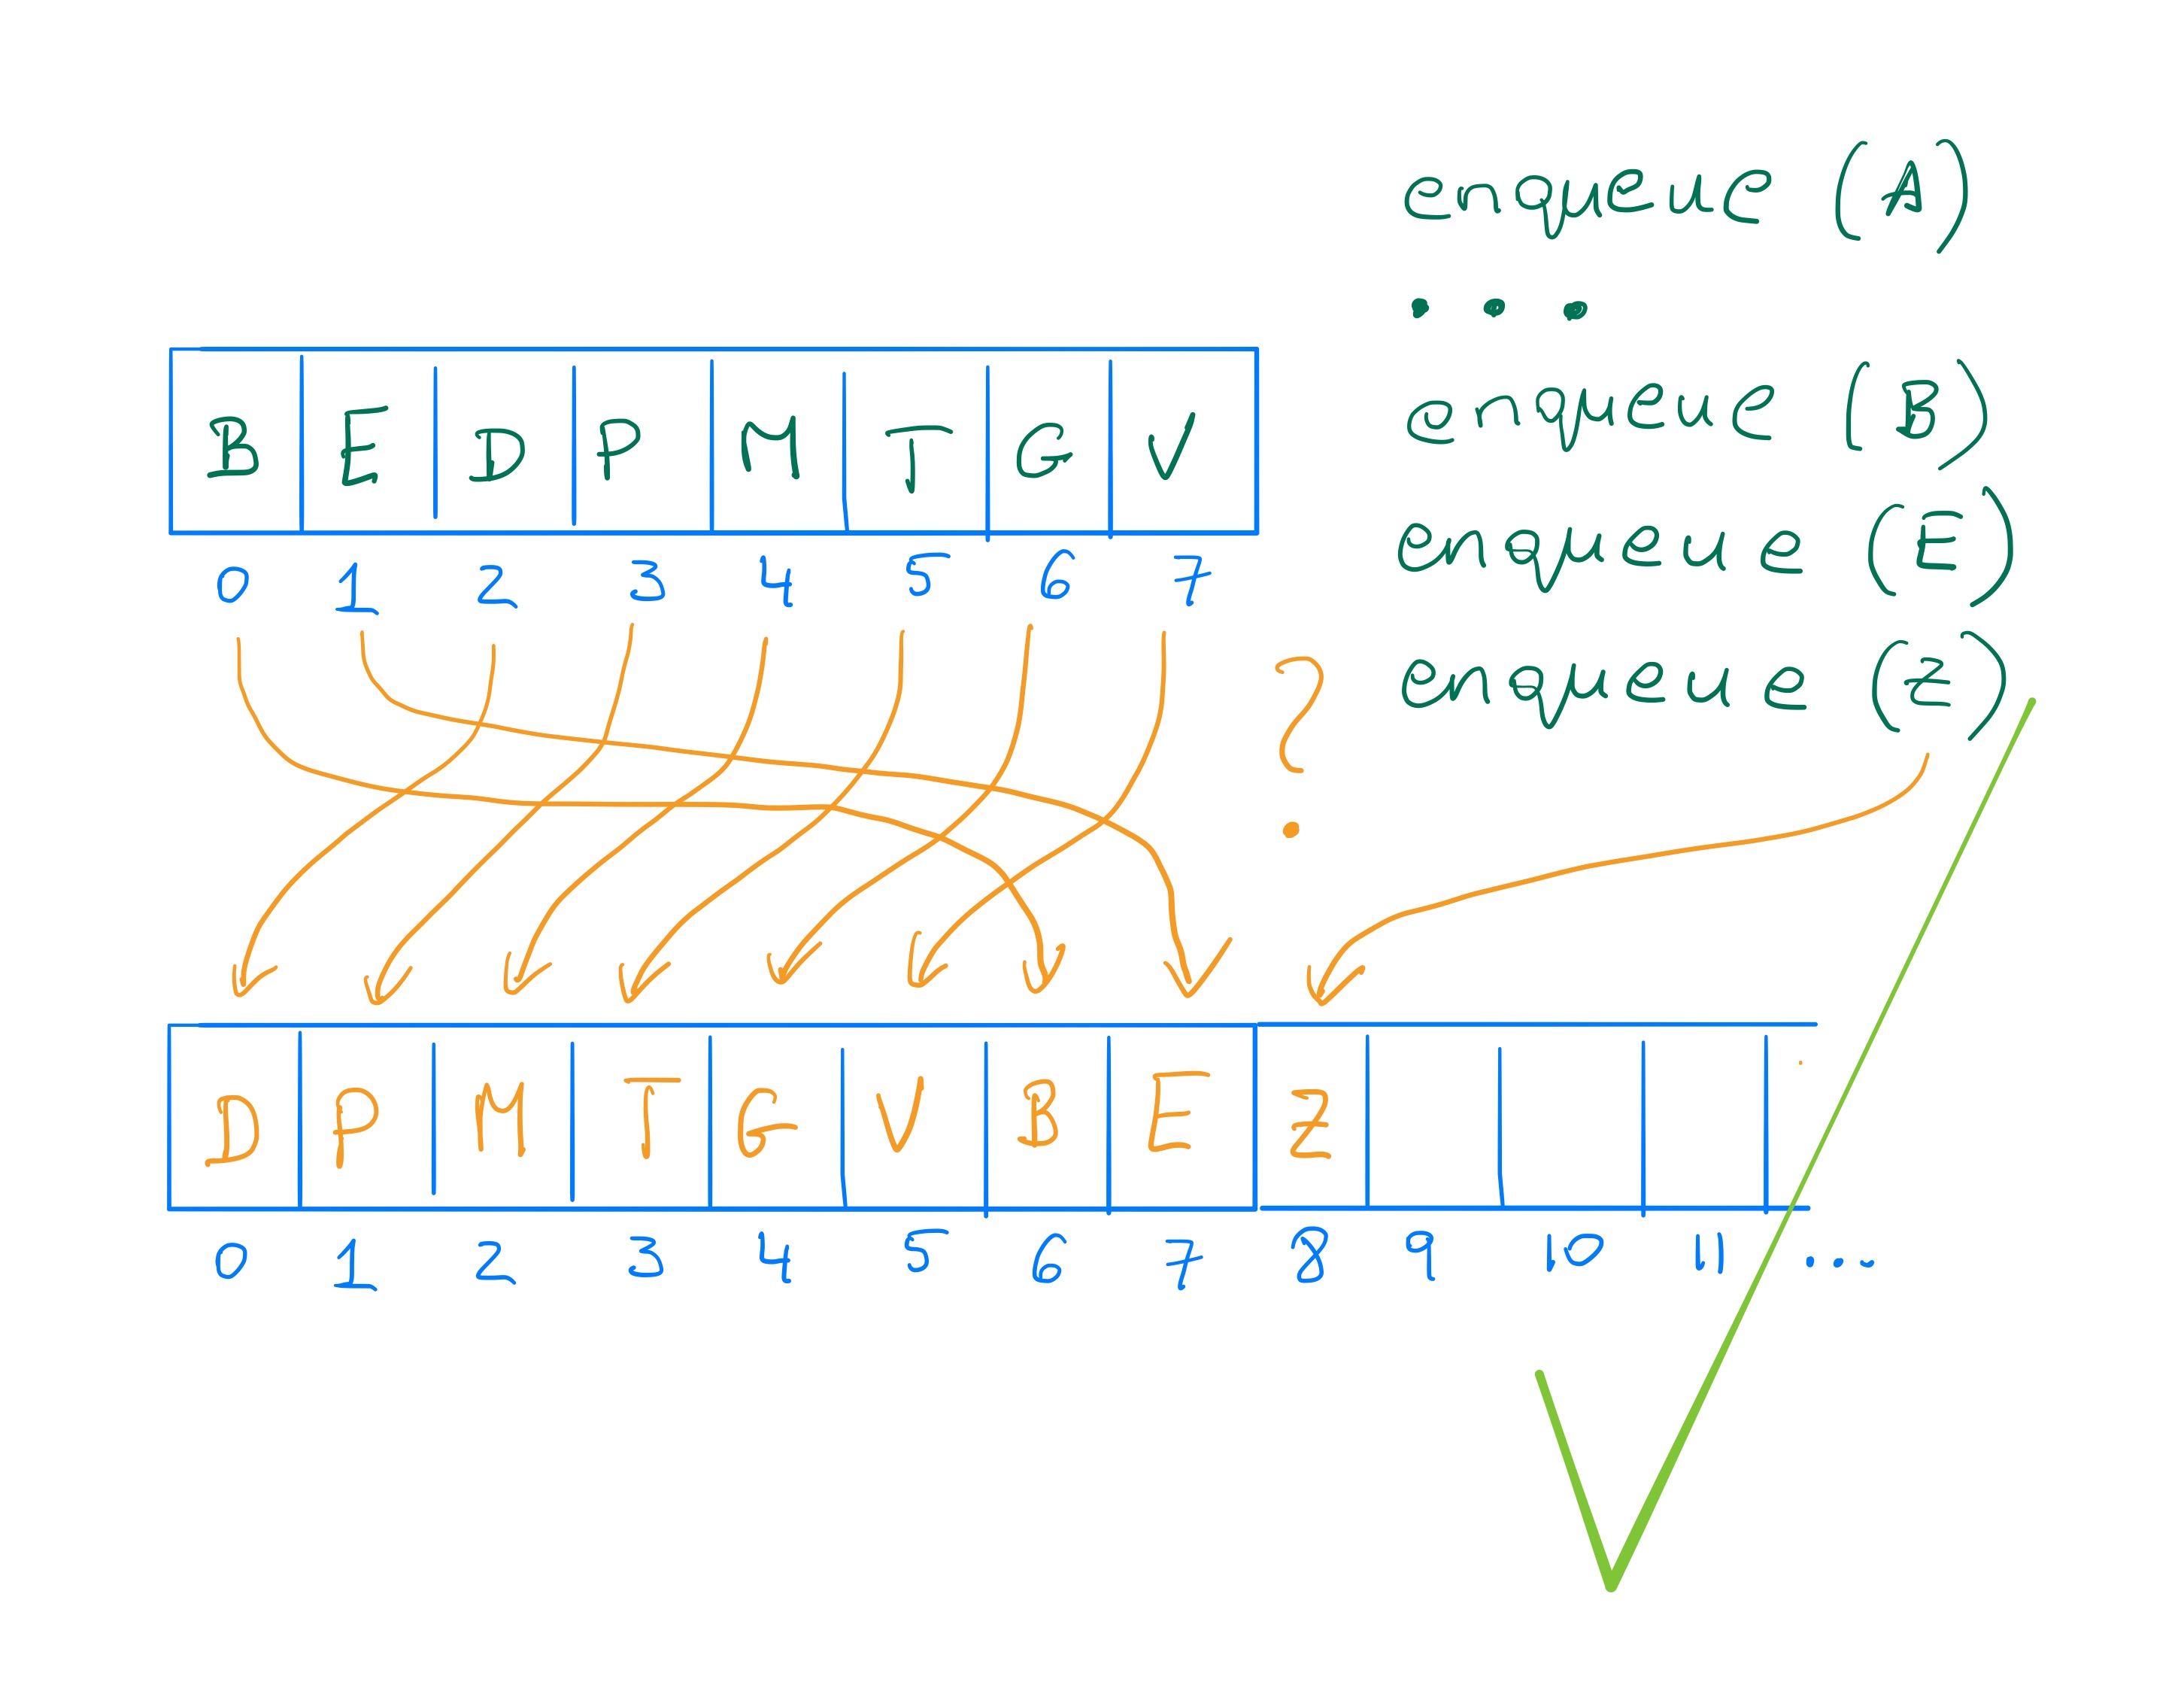 enqueue (A)
...
enqueue (B)
enqueue (E)
enqueue (Z)
B E D P M T G V
0 1 2 3 4 5 6 7
?
D P M T G V B E Z
0 1 2 3 4 5 6 7 8 9 10 11 ...